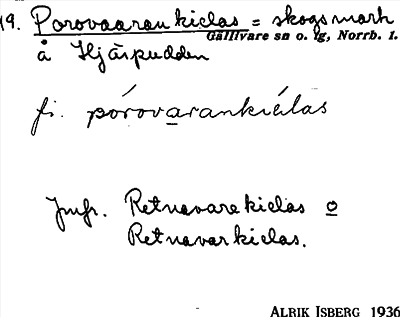 19. Porovaarankielas = skogsmark
Gällivare sn o. lg, Norrb. l.
å Hjäspudden
fi. pórovarankiélas
Jmfr. Retnavarekielas o
Retnavarkielas.
ALRIK ISBERG 1936